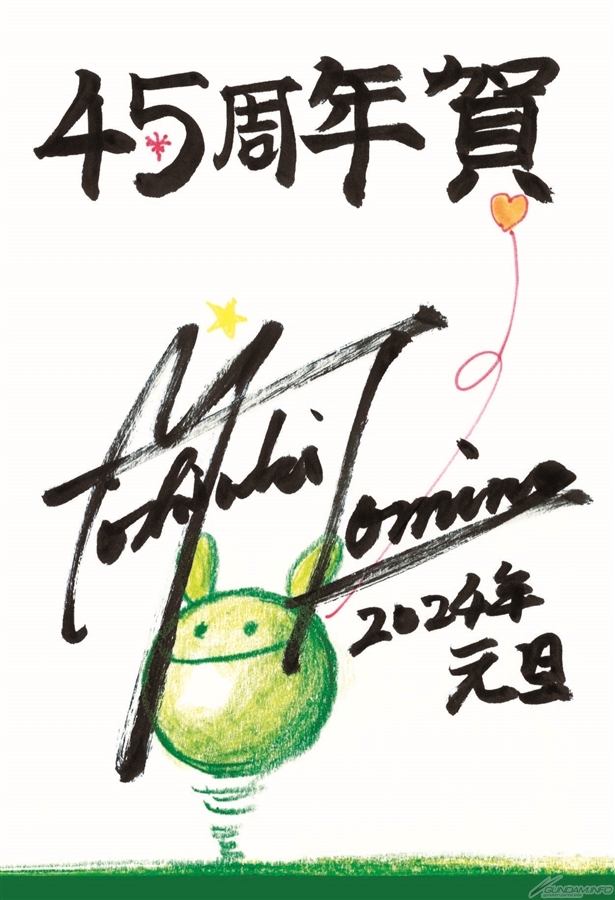 45周年賀
Yoshiyuki Tomino
2024年
元旦
GUNDAM.INFO